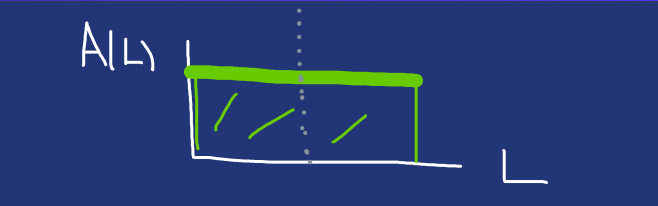 A(L)
L